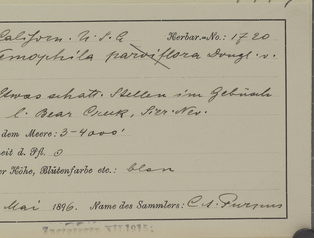 Californ. U.S.A Herbar.-No.: 1720
Nemophila parviflora Dougl. v.
Etwas schatt. Stellen im Gebüsch
b. Bear Creek, Sier. Nev.
dem Meere: 3-4000'
eit d. Pfl. 0
er Höhe, Blütenfarbe etc.: blau
Mai 1896. Name des Sammlers: C. A. Purpus